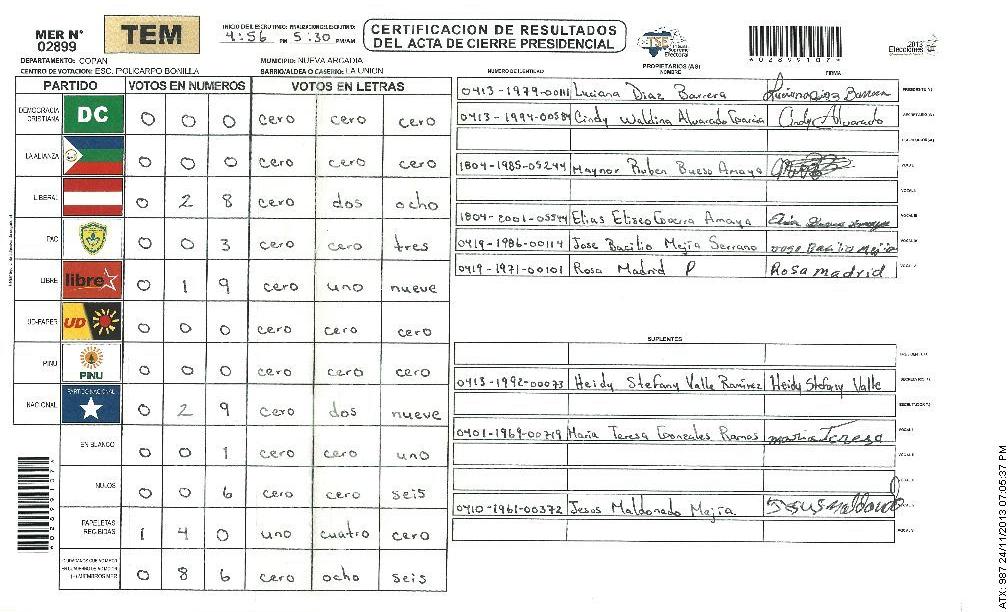 MER N° 02899
TEM
INICIO DEL ESCRUTINIO: FINALIZACION DEL ESCRUTINIO:
4:56 PM 5:30 PM/AM
CERTIFICACION DE RESULTADOS
DEL ACTA DE CIERRE PRESIDENCIAL
TSE
2013
Elecciones
*02899107*
DEPARTAMENTO: COPAN
MUNICIPIO: NUEVA ARCADIA
CENTRO DE VOTACION: ESC. POLICARPO BONILLA
BARRIO/ALDEA O CASERIO: LA UNION
PARTIDO VOTOS EN NUMEROS VOTOS EN LETRAS
DEMOCRACIA CRISTIANA DC 0 0 0 cero cero cero
LA ALIANZA 0 0 0 cero cero cero
LIBERAL 0 2 8 cero dos ocho
PAC 0 0 3 cero cero tres
LIBRE libre 0 1 9 cero uno nueve
UD-FAPER UD 0 0 0 cero cero cero
PINU PINU 0 0 0 cero cero cero
NACIONAL PARTIDO NACIONAL 0 2 9 cero dos nueve
EN BLANCO 0 0 1 cero cero uno
NULOS 0 0 6 cero cero seis
PAPELETAS RECIBIDAS 1 4 0 uno cuatro cero
0 8 6 cero ocho seis
NUMERO DE IDENTIDAD PROPIETARIOS (AS) NOMBRE FIRMA
0413-1979-00111 Luciana Diaz Barrera Luciana Diaz Barrera PRESIDENTE(A)
0413-1994-00584 Cindy Waldina Alvarado Garcia Cindy Alvarado SECRETARIO(A)
ESCRUTADOR(A)
1804-1985-05244 Maynor Ruben Bueso Amaya VOCAL I
VOCAL II
1804-2001-05544 Elias Eliseo Guerra Amaya VOCAL III
0419-1986-00114 Jose Bacilio Mejia Serrano Jose Bacilio Mejia
0419-1971-00101 Rosa Madrid P Rosa madrid
SUPLENTES
PRESIDENTE(A)
0413-1992-00073 Heidy Stefany Valle Ramirez Heidy Stefany Valle SECRETARIO(A)
ESCRUTADOR(A)
0401-1969-00719 Maria Teresa Gonzales Ramos maria Teresa VOCAL I
VOCAL II
0410-1961-00372 Jesus Maldonado Mejia. Jesus Maldonado
*02899107*
ATX: 987 24/11/2013 07:05:37 PM